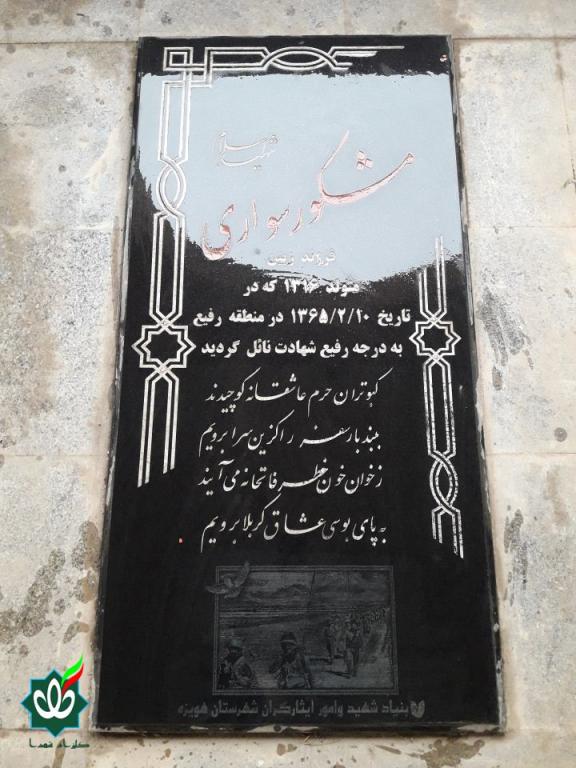 شهید اسلام
مشکور سواری
فرزند زبین
متولد ۱۳۱۶ که در
تاریخ ۱۳۶۵/۲/۱۰ در منطقه رفیع
به درجه رفیع شهادت نائل گردید
کبوتران حرم عاشقانه کوچیدند
ببند بار سفر را کزین سرا برویم
ز خوان خون خطر فاتحانه می آیند
به پای بوسی عشاق کربلا برویم
بنیاد شهید وامور ایثارگران شهرستان هویزه
گلزار شهدا